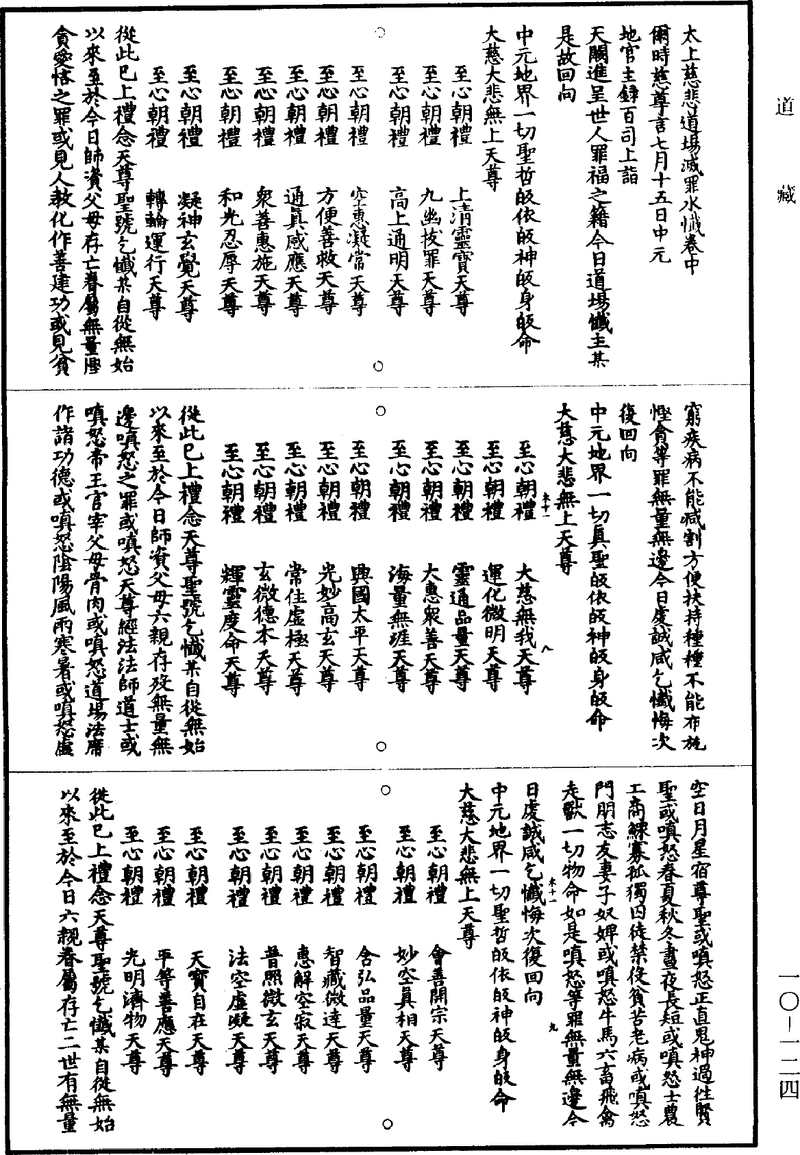 道藏
太上慈悲道場滅罪水懺卷中
爾時慈尊言七月十五日中元
地官主錄百司上詣
天闕進呈世人罪福之籍今日道場懺主某
是故回向
中元地界一切聖哲皈依皈神皈身皈命
大慈大悲無上天尊
至心朝禮 上清靈寶天尊
至心朝禮 九幽拔罪天尊
至心朝禮 高上通明天尊
至心朝禮 空惠凝常天尊
至心朝禮 方便善救天尊
至心朝禮 通真感應天尊
至心朝禮 眾善惠施天尊
至心朝禮 和光忍辱天尊
至心朝禮 凝神玄覺天尊
至心朝禮 轉輪運行天尊
從此已上禮念天尊聖號乞懺某自從無始
以來至於今日師資父母存亡眷屬無量慳
貪愛悋之罪或見人教化作善建功或見貧
窮疾病不能減割方便扶持種種不能布施
慳貪等罪無量無邊今日虔誠咸乞懺悔次
復回向
中元地界一切真聖皈依皈神皈身皈命
大慈大悲無上天尊
至心朝禮 大慈無我天尊
至心朝禮 運化微明天尊
至心朝禮 靈通品量天尊
至心朝禮 大惠眾善天尊
至心朝禮 海量無涯天尊
至心朝禮 興國太平天尊
至心朝禮 光妙高玄天尊
至心朝禮 常住虛極天尊
至心朝禮 玄微德本天尊
至心朝禮 輝靈度命天尊
從此已上禮念天尊聖號乞懺某自從無始
以來至於今日師資父母六親存歿無量無
邊嗔怒之罪或嗔怒天尊經法法師道士或
嗔怒帝王官宰父母骨肉或嗔怒道場法席
作諸功德或嗔怒陰陽風雨寒暑或嗔怒虛
空日月星宿尊聖或嗔怒正直鬼神過往賢
聖或嗔怒春夏秋冬晝夜長短或嗔怒士農
工商鰥寡孤獨囚徒禁役貧苦老病或嗔怒
門朋志友妻子奴婢或嗔怒牛馬六畜飛禽
走獸一切物命如是嗔怒等罪無量無邊今
日虔誠咸乞懺悔次復回向
中元地界一切聖哲皈依皈神皈身皈命
大慈大悲無上天尊
至心朝禮 會善開宗天尊
至心朝禮 妙空真相天尊
至心朝禮 含弘品量天尊
至心朝禮 智藏微達天尊
至心朝禮 惠解空寂天尊
至心朝禮 普照微玄天尊
至心朝禮 法空虛凝天尊
至心朝禮 天寶自在天尊
至心朝禮 平等善應天尊
至心朝禮 光明濟物天尊
從此已上禮念天尊聖號乞懺某自從無始
以來至於今日六親眷屬存亡二世有無量
一〇—一二四